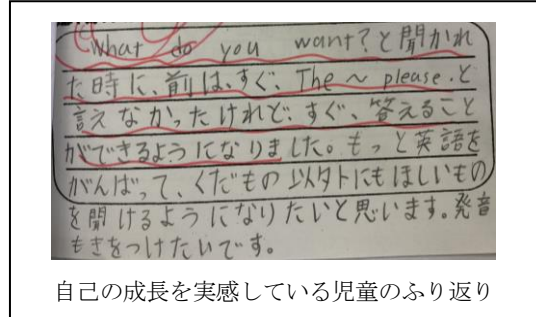 What do you want?と聞かれ
た時に、前は、すぐ、The ~ please.と
言えなかったけれど、すぐ、答えること
ができるようになりました。もっと英語を
がんばって、くだもの以外にもほしいもの
を聞けるようになりたいと思います。発音
もきをつけたいです。
自己の成長を実感している児童のふり返り